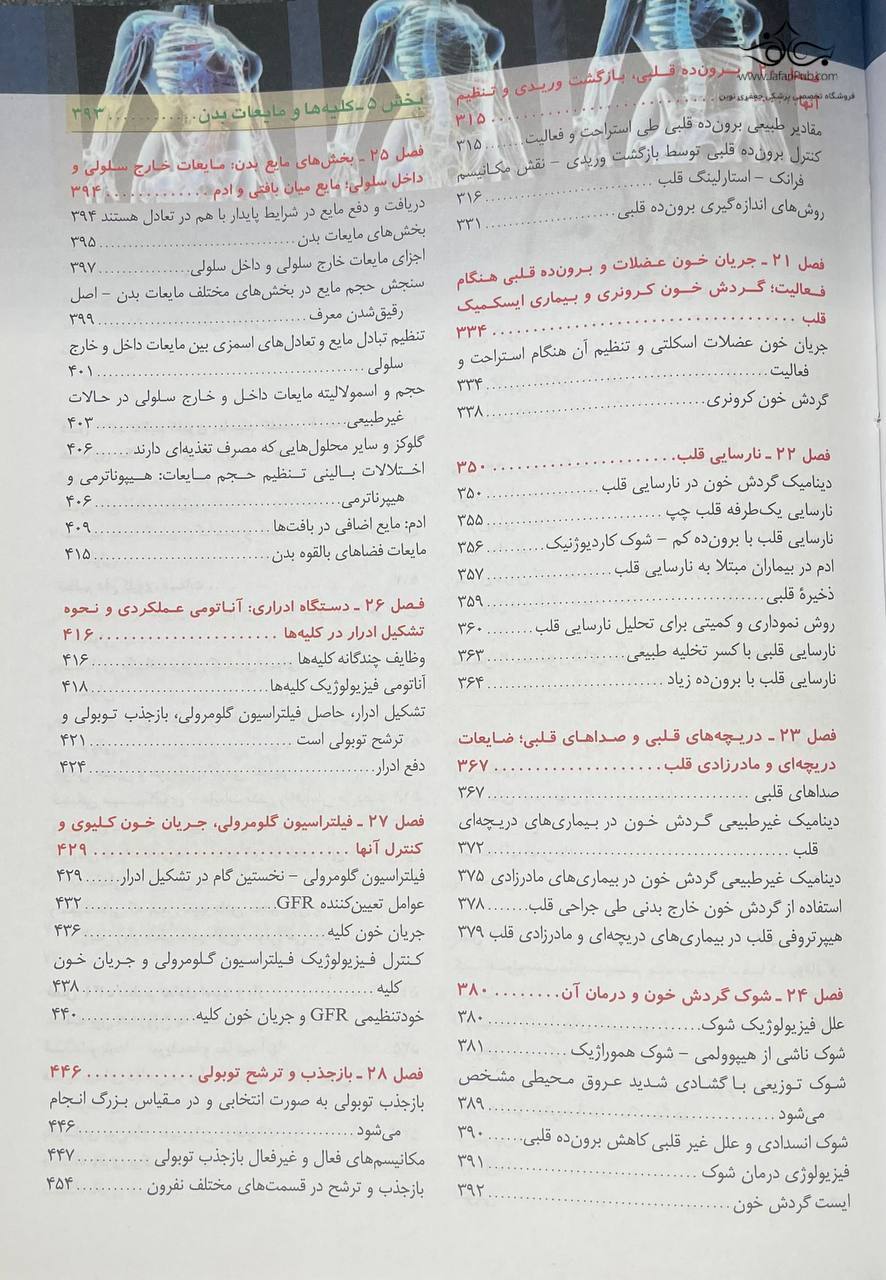 www.JafariPub.com
فروشگاه تخصصی پزشکی جعفری نوین
برون‌ده قلبی، بازگشت وریدی و تنظیم
آنها ........ ۳۱۵
مقادیر طبیعی برون‌ده قلبی طی استراحت و فعالیت....... ۳۱۵
کنترل برون‌ده قلبی توسط بازگشت وریدی – نقش مکانیسم
فرانک – استارلینگ قلب ........ ۳۱۶
روش‌های اندازه‌گیری برون‌ده قلبی ........ ۳۳۱
فصل ۲۱ ـ جریان خون عضلات و برون‌ده قلبی هنگام
فعالیت؛ گردش خون کرونری و بیماری ایسکمیک
قلب ........ ۳۳۴
جریان خون عضلات اسکلتی و تنظیم آن هنگام استراحت و
فعالیت........ ۳۳۴
گردش خون کرونری........ ۳۳۸
فصل ۲۲ ـ نارسایی قلب........ ۳۵۰
دینامیک گردش خون در نارسایی قلب ........ ۳۵۰
نارسایی یک‌طرفه قلب چپ ........ ۳۵۵
نارسایی قلب با برون‌ده کم – شوک کاردیوژنیک........ ۳۵۶
ادم در بیماران مبتلا به نارسایی قلب ........ ۳۵۷
ذخیرهٔ قلبی........ ۳۵۹
روش نموداری و کمیتی برای تحلیل نارسایی قلب ........ ۳۶۰
نارسایی قلبی با کسر تخلیه طبیعی........ ۳۶۳
نارسایی قلب با برون‌ده زیاد ........ ۳۶۴
فصل ۲۳ ـ دریچه‌های قلبی و صداهای قلبی؛ ضایعات
دریچه‌ای و مادرزادی قلب........ ۳۶۷
صداهای قلبی ........ ۳۶۷
دینامیک غیرطبیعی گردش خون در بیماری‌های دریچه‌ای
قلب ........ ۳۷۲
دینامیک غیرطبیعی گردش خون در بیماری‌های مادرزادی ۳۷۵
استفاده از گردش خون خارج بدنی طی جراحی قلب....... ۳۷۸
هیپرتروفی قلب در بیماری‌های دریچه‌ای و مادرزادی قلب ۳۷۹
فصل ۲۴ ـ شوک گردش خون و درمان آن........ ۳۸۰
علل فیزیولوژیک شوک........ ۳۸۰
شوک ناشی از هیپوولمی – شوک هموراژیک ........ ۳۸۱
شوک توزیعی با گشادی شدید عروق محیطی مشخص
می‌شود ........ ۳۸۹
شوک انسدادی و علل غیر قلبی کاهش برون‌ده قلبی...... ۳۹۰
فیزیولوژی درمان شوک ........ ۳۹۱
ایست گردش خون ........ ۳۹۲
بخش ۵ ـ کلیه‌ها و مایعات بدن........ ۳۹۳
فصل ۲۵ ـ بخش‌های مایع بدن: مایعات خارج سلولی و
داخل سلولی؛ مایع میان بافتی و ادم ........ ۳۹۴
دریافت و دفع مایع در شرایط پایدار با هم در تعادل هستند ۳۹۴
بخش‌های مایعات بدن........ ۳۹۵
اجزای مایعات خارج سلولی و داخل سلولی........ ۳۹۷
سنجش حجم مایع در بخش‌های مختلف مایعات بدن – اصل
رقیق‌شدن معرف ........ ۳۹۹
تنظیم تبادل مایع و تعادل‌های اسمزی بین مایعات داخل و خارج
سلولی ........ ۴۰۱
حجم و اسمولالیته مایعات داخل و خارج سلولی در حالات
غیرطبیعی........ ۴۰۳
گلوکز و سایر محلول‌هایی که مصرف تغذیه‌ای دارند ...... ۴۰۶
اختلالات بالینی تنظیم حجم مایعات: هیپوناترمی و
هیپرناترمی........ ۴۰۶
ادم: مایع اضافی در بافت‌ها........ ۴۰۹
مایعات فضاهای بالقوه بدن........ ۴۱۵
فصل ۲۶ ـ دستگاه ادراری: آناتومی عملکردی و نحوه
تشکیل ادرار در کلیه‌ها ........ ۴۱۶
وظایف چندگانه کلیه‌ها ........ ۴۱۶
آناتومی فیزیولوژیک کلیه‌ها........ ۴۱۸
تشکیل ادرار، حاصل فیلتراسیون گلومرولی، بازجذب توبولی و
ترشح توبولی است ........ ۴۲۱
دفع ادرار........ ۴۲۴
فصل ۲۷ ـ فیلتراسیون گلومرولی، جریان خون کلیوی و
کنترل آنها ........ ۴۲۹
فیلتراسیون گلومرولی – نخستین گام در تشکیل ادرار...... ۴۲۹
عوامل تعیین‌کننده GFR........ ۴۳۲
جریان خون کلیه........ ۴۳۶
کنترل فیزیولوژیک فیلتراسیون گلومرولی و جریان خون
کلیه ........ ۴۳۸
خودتنظیمی GFR و جریان خون کلیه........ ۴۴۰
فصل ۲۸ ـ بازجذب و ترشح توبولی ........ ۴۴۶
بازجذب توبولی به صورت انتخابی و در مقیاس بزرگ انجام
می‌شود ........ ۴۴۶
مکانیسم‌های فعال و غیرفعال بازجذب توبولی ........ ۴۴۷
بازجذب و ترشح در قسمت‌های مختلف نفرون ........ ۴۵۴